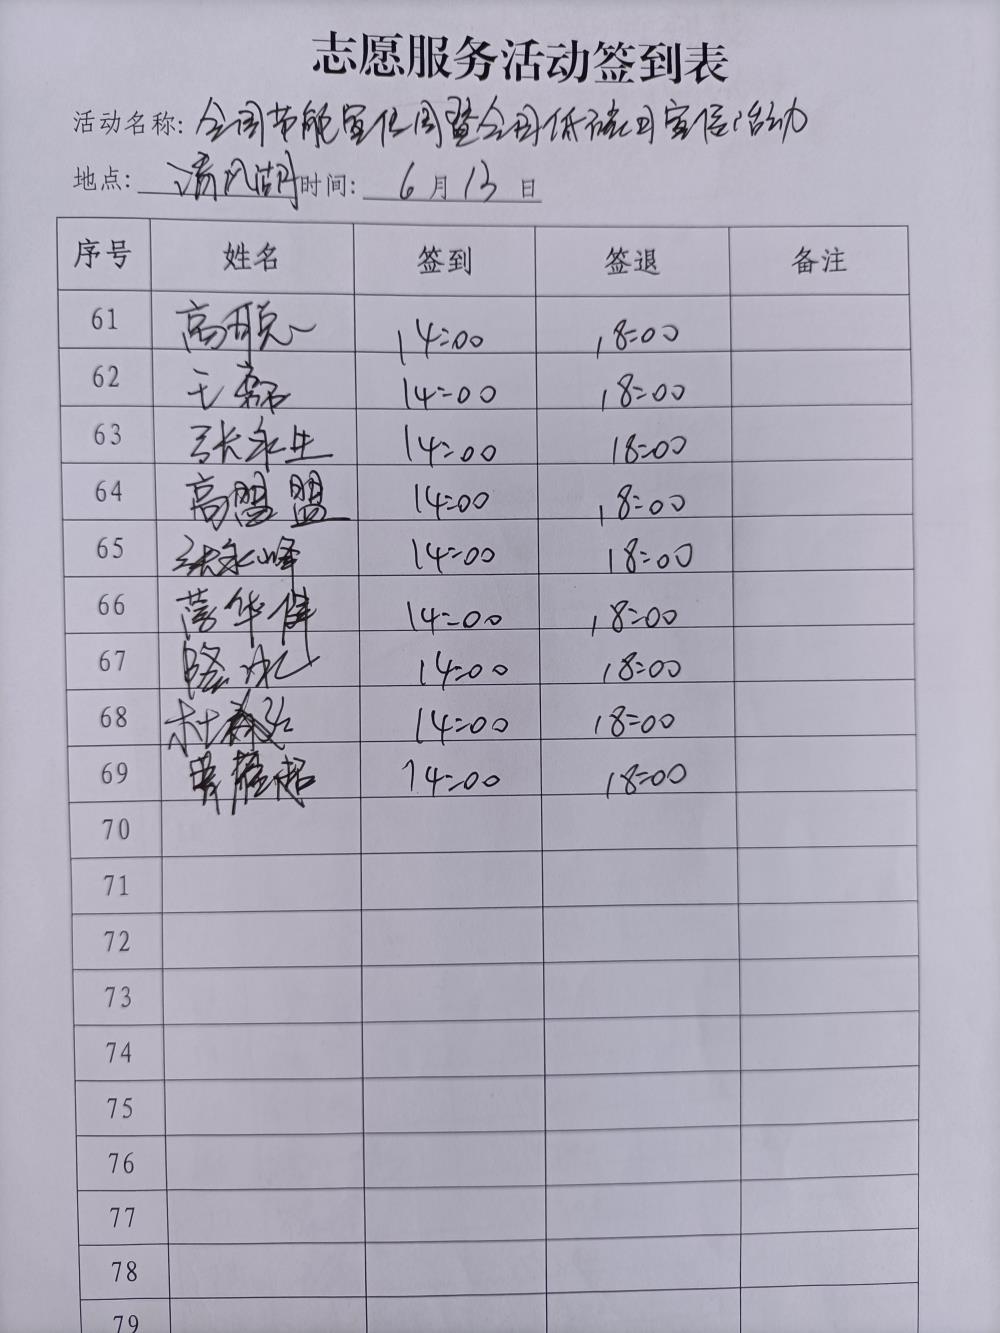 志愿服务活动签到表
活动名称: 全国节能宣传周暨全国低碳日宣传活动
地点: 清风湖 时间: 6 月 13 日
序号 姓名 签到 签退 备注
61 高 14:00 18:00
62 王磊 14:00 18:00
63 张永生 14:00 18:00
64 高盟盟 14:00 18:00
65 张永峰 14:00 18:00
66 华伟 14:00 18:00
67 隆冰 14:00 18:00
68 杜 14:00 18:00
69 超 14:00 18:00
70
71
72
73
74
75
76
77
78
79